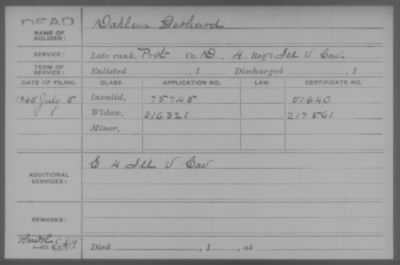 DEAD
NAME OF SOLDIER: Dahleen Gerhard
SERVICE: Late rank, Prvt Co. D, 4 Reg't Ill V Cav.
TERM OF SERVICE: Enlisted , 1 Discharged 1
DATE OF FILING. CLASS APPLICATION NO. LAW. CERTIFICATE NO.
1865 July 5 Invalid, 75745 51640
Widow, 316321 217561
Minor,
ADDITIONAL SERVICES: C 4 Ill V Cav
REMARKS:
Died , 1 , at